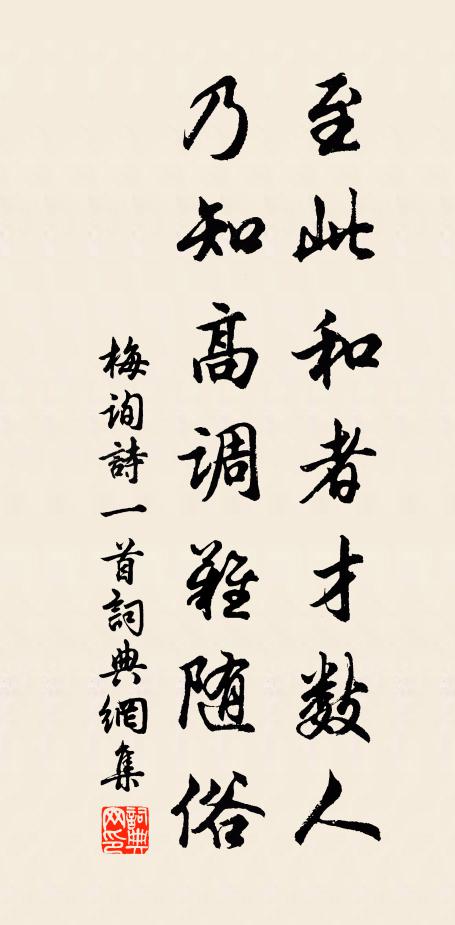 至此和者才数人
乃知高调难随俗
梅询詩一首詞典網集
詞典网印